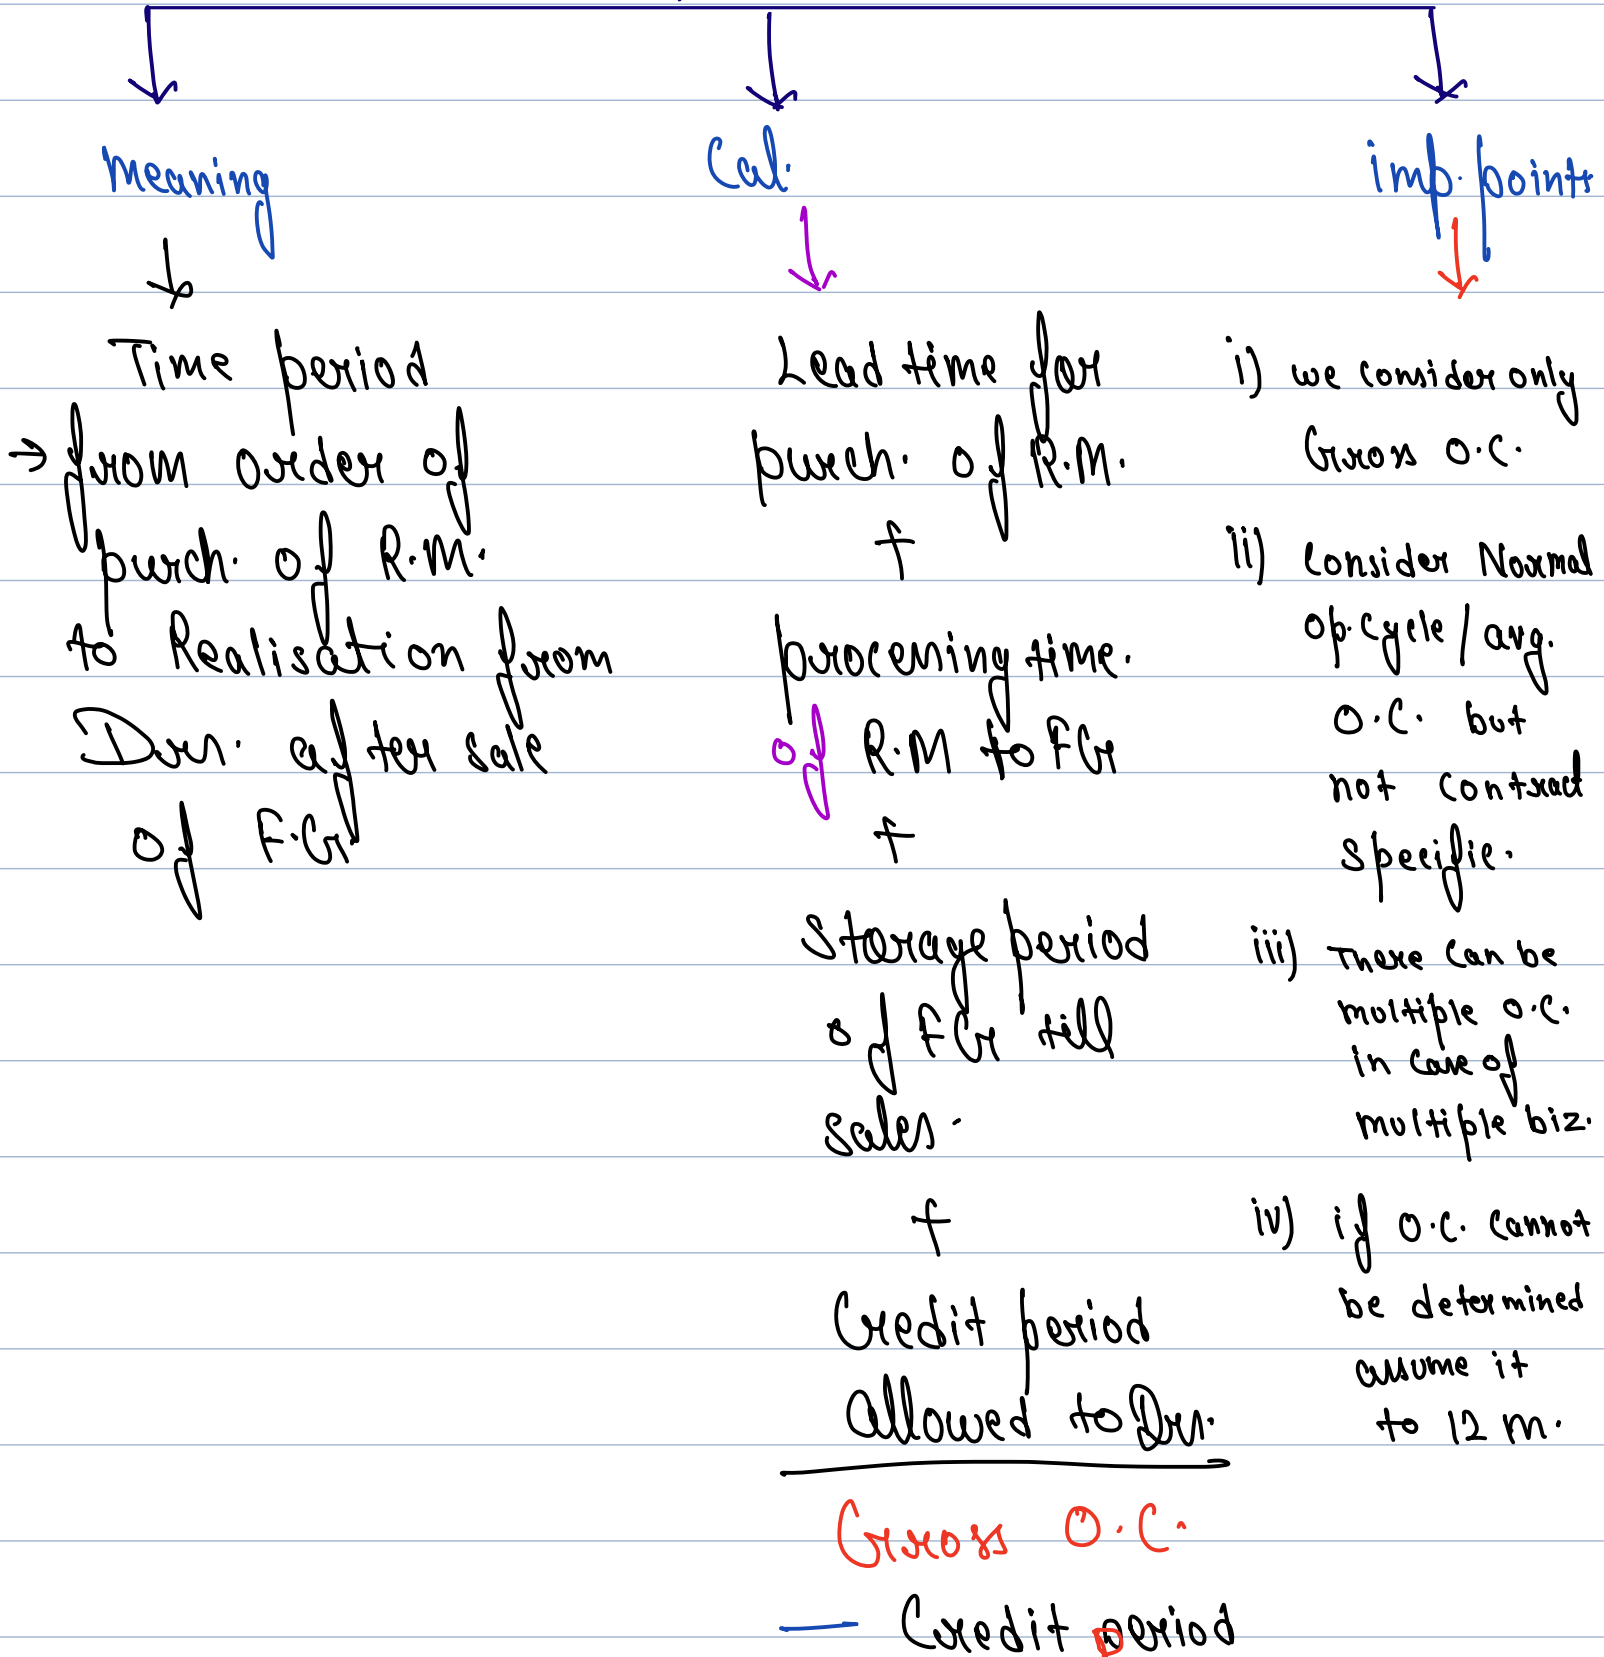 meaning
Time period
→ from order of
purch. of R.M.
to Realisation from
Drs. after sale
of F.G
Cal.
Lead time for
purch. of R.M.
+
processing time.
of R.M to FG
+
Storage period
of FG till
sales.
+
Credit period
Allowed to Drs.
Gross O.C.
— Credit period
imp. points
i) we consider only
Gross O.C.
ii) Consider Normal
op.cycle / avg.
O.C. but
not contract
specific.
iii) There can be
multiple O.C.
in case of
multiple biz.
iv) if O.C. cannot
be determined
assume it
to 12 m.